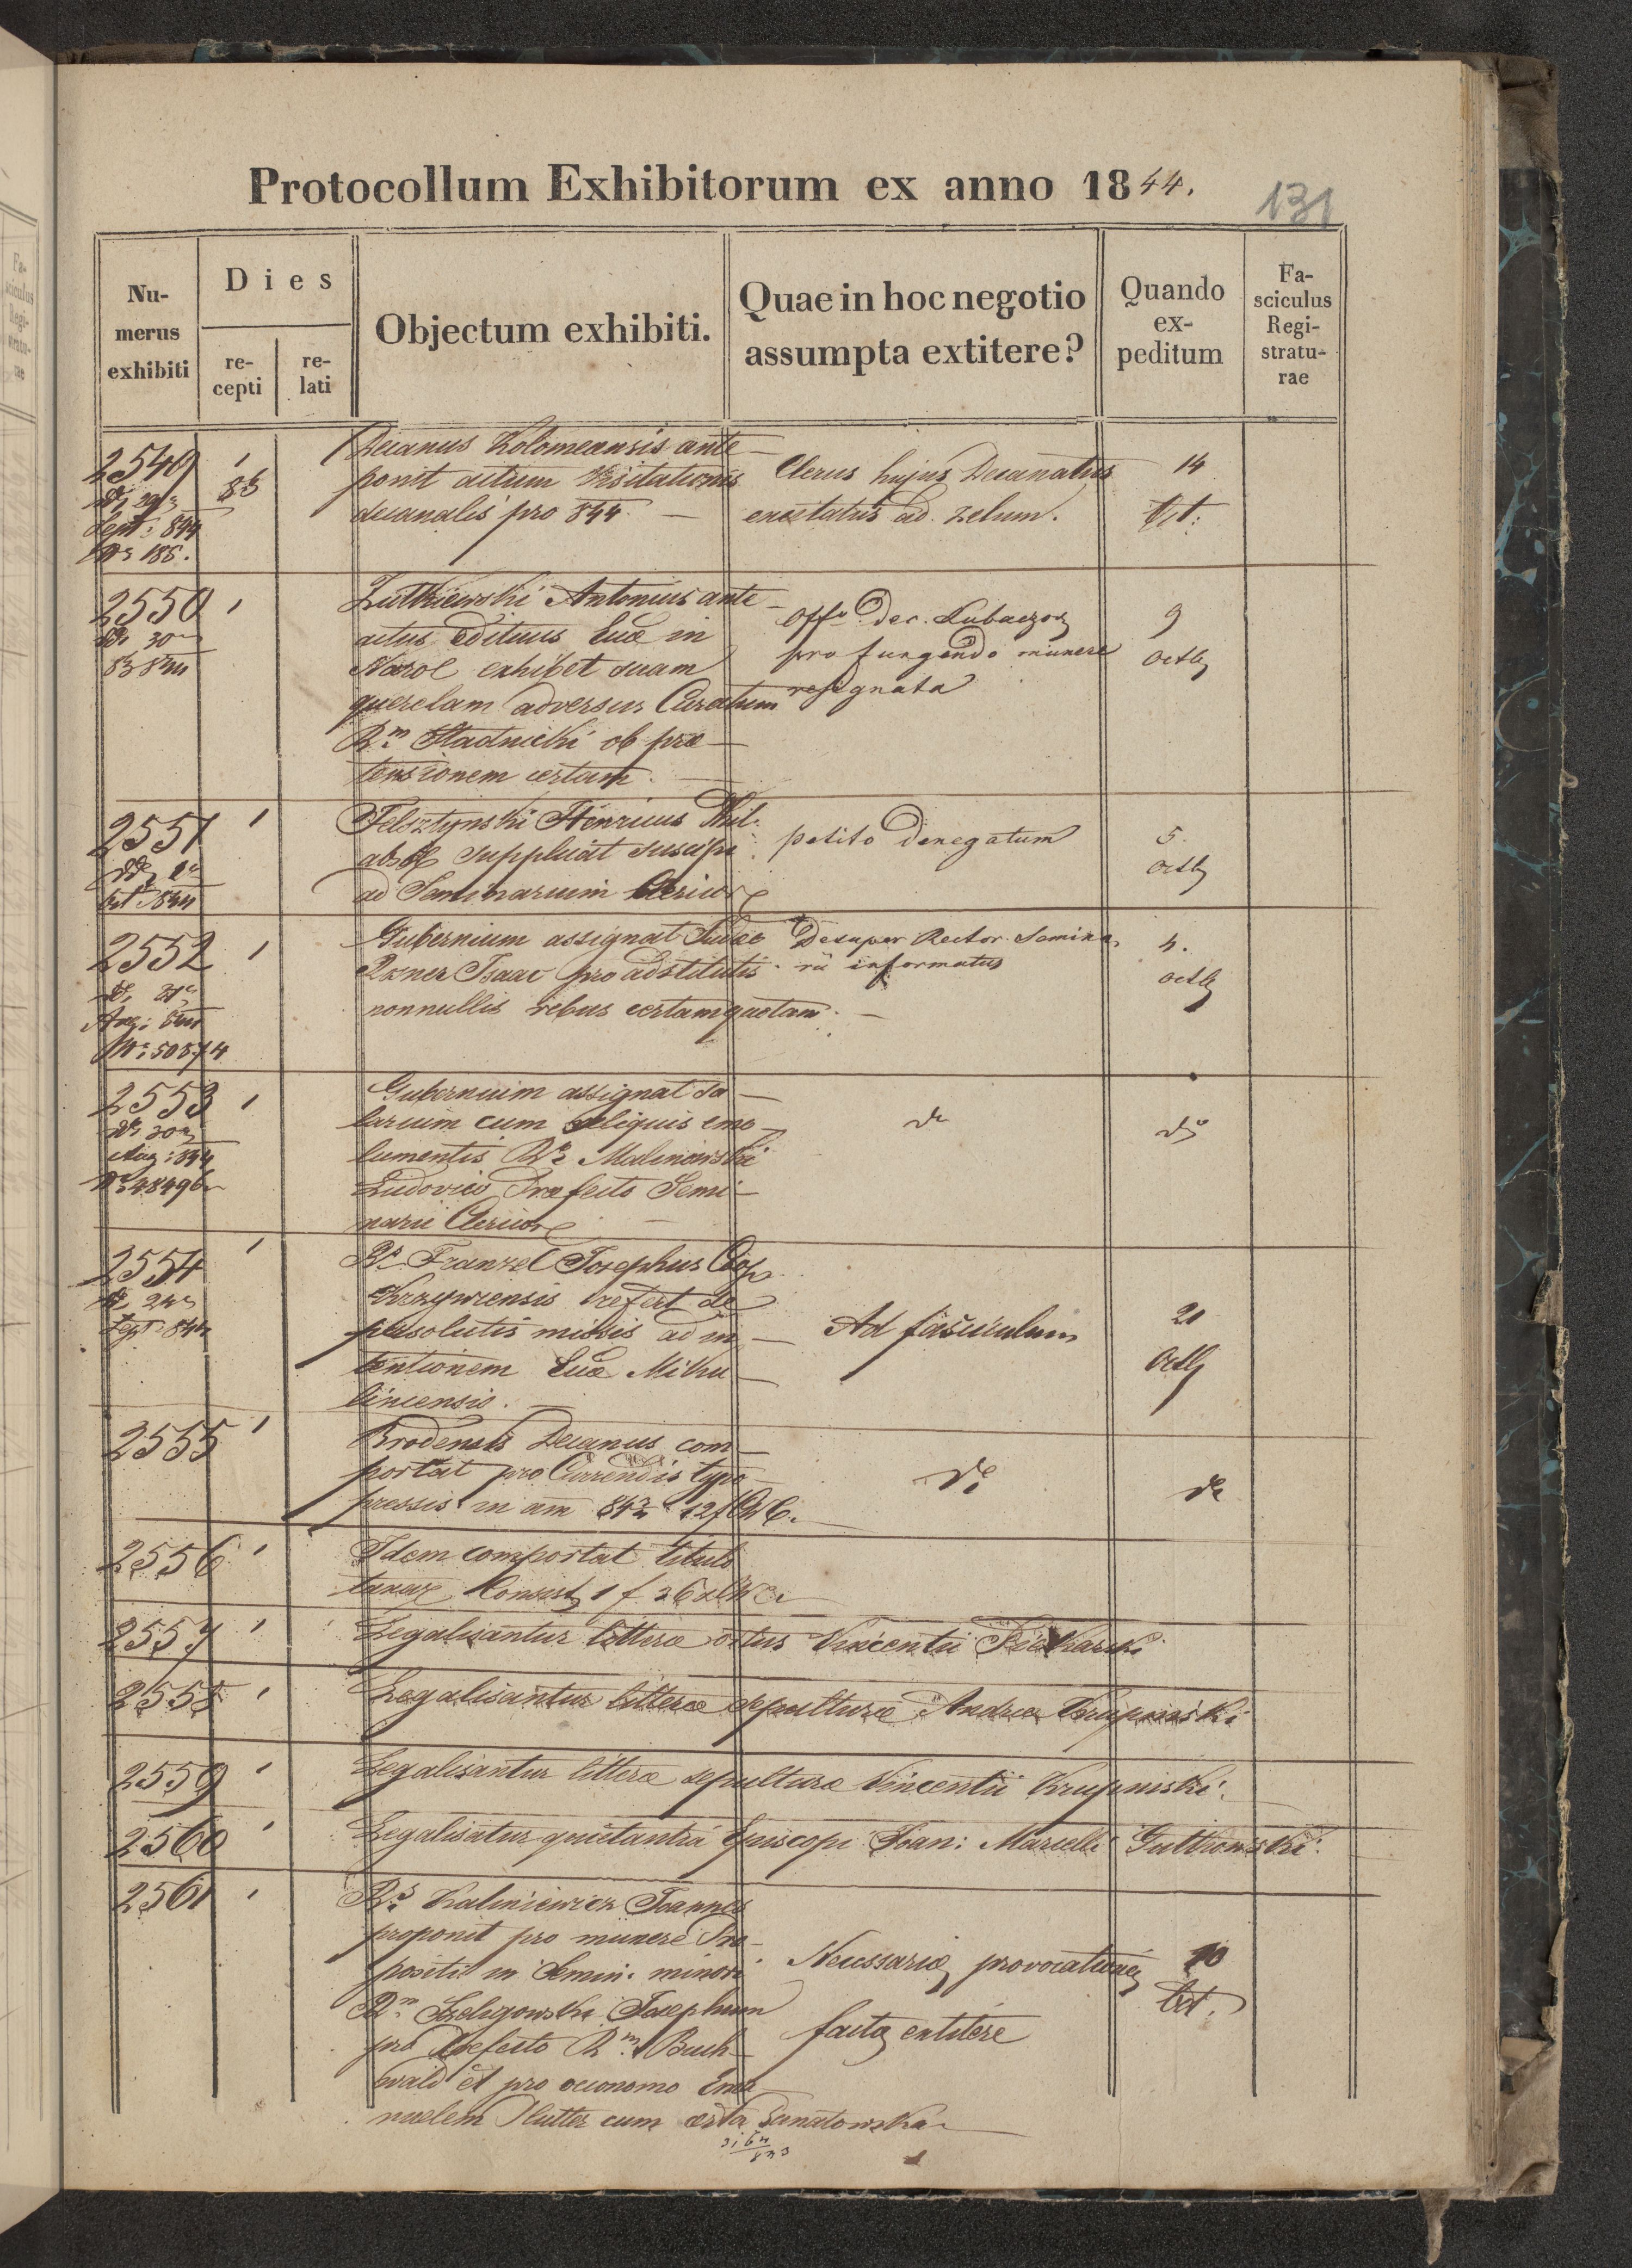 Protocollum Exhibitorum ex anno 1844.
131
Nu-
merus
exhibiti
Dies
re-
cepti
re-
lati
Objectum exhibiti.
Quae in hoc negotio
assumpta extitere?
Quando
ex-
peditum
Fa-
sciculus
Regi-
stratu-
rae
2549
Sept: 844
Nr 188.
1
Decanus Kolomeansis ante-
ponit actum Visitationis
decanalis pro 844 —
Clerus hujus Decanatus
excitatus ad zelum.
14
2550
1
Antonius ante-
actus Edituus Eccae in
Narol exhibet suam
querelam adversus Curatum
Rm Stadnicki ob prae-
tensionem certam. —
Offo Dec. Lubaczov
pro fungendo munere
resignata
9
Octb
2551
1
Felsztynski Henricus Phil.
abs. supplicat suscipi
ad Seminarium Clericor
petito denegatum
5.
Octb
2552
Aug: 844
Nr: 50874
1
Gubernium assignat Judaeo
Isaac pro adstitutis
nonnullis rebus certam quotam. —
Desuper Rector Semina-
rii informatus
4.
Octb
2553
Aug: 844
Nr 48496
1
Gubernium assignat Sa-
larium cum reliquis emo-
lumentis Rdo Malinowski
Ludovico Praefecto Semi-
narii Clericor —
do
do
2554
1
Rs Franzel Josephus Coop
refert de
persolutis missis ad in-
tentionem Eccae Miku-
lincensis. —
Ad fasciculum
21
Octb
2555
1
Brodensis Decanus com-
portat pro Currendis typo-
pressis in am 843
do
do
2556
1
Idem comportat titulo
taxae Consist 1 f 36 x
2557
1
Legalisantur litterae ortus Vincentii
2558
1
Legalisantur litterae sepulturae Andreae Krupinski
2559
1
Legalisantur litterae sepulturae Vincentii Krupinski.
2560
1
Legalisatur quietantia Episcopi Joan: Marcelli Gutkowski.
2561
1
Rs Kaliniewicz Joannes
proponit pro munere Prae-
positi in Semin. minori
Rm Szeligowski Josephum
pro Praefecto Rm Buch-
wald et pro oeconomo Ema-
nuelem Hutter cum
Necessariae provocationes
factae extitere
10
Oct.